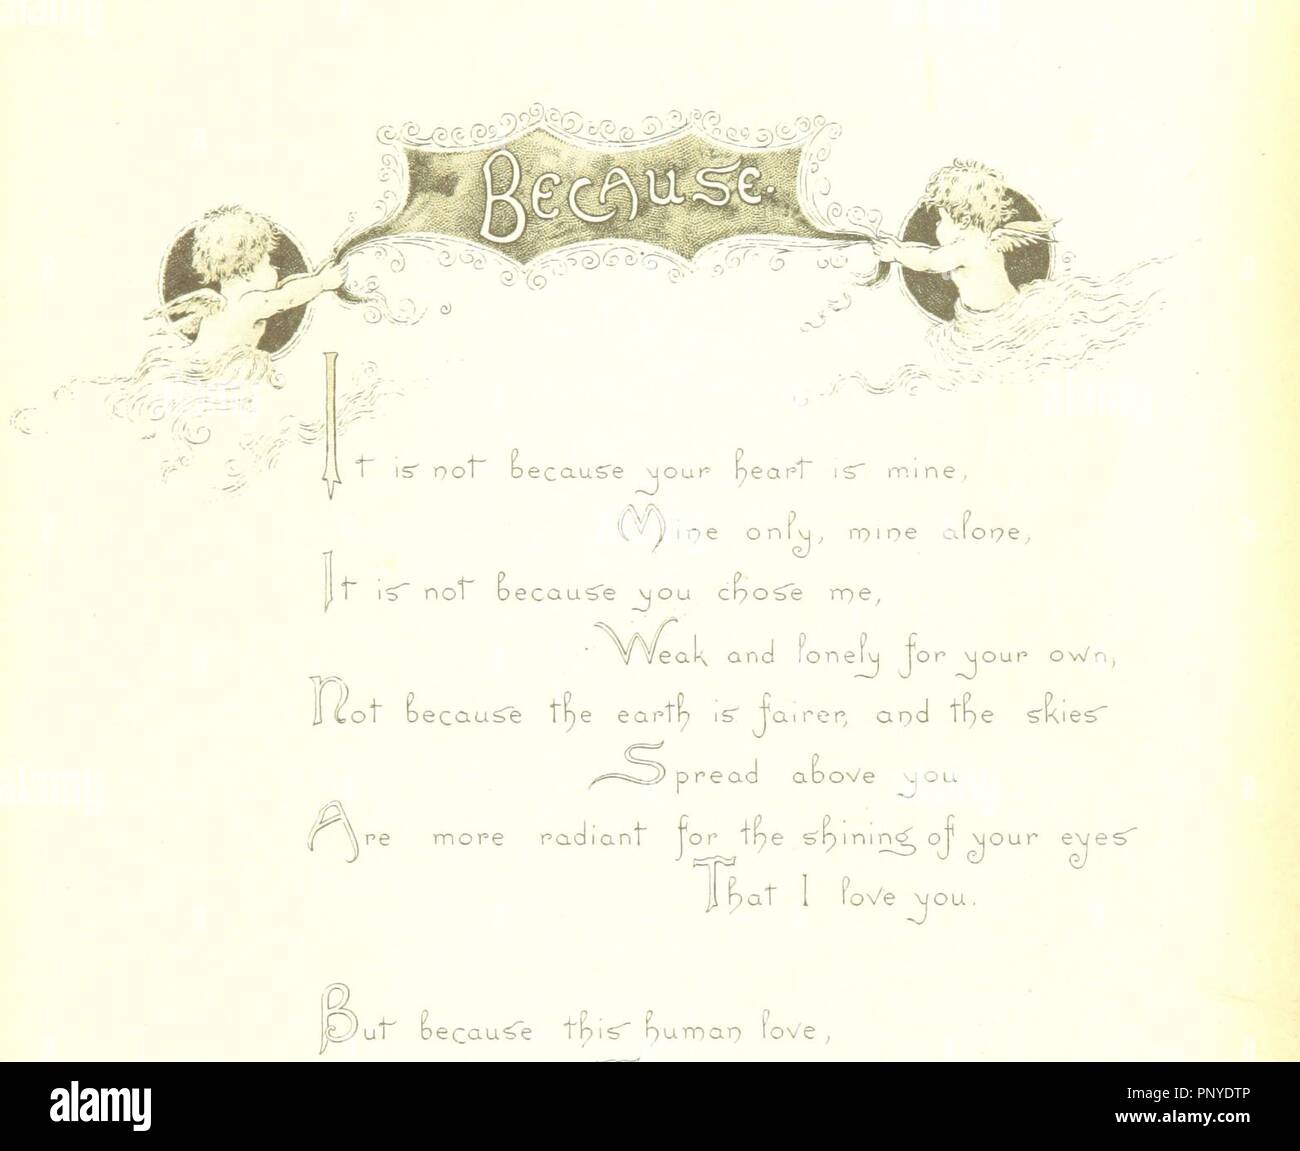 BECAUSE.
It is not because your heart is mine,
Mine only, mine alone,
It is not because you chose me,
Weak and lonely for your own,
Not because the earth is fairer, and the skies
Spread above you
Are more radiant for the shining of your eyes
That I love you.
But because this human love,
alamy
Image ID: PNYDTP
www.alamy.com